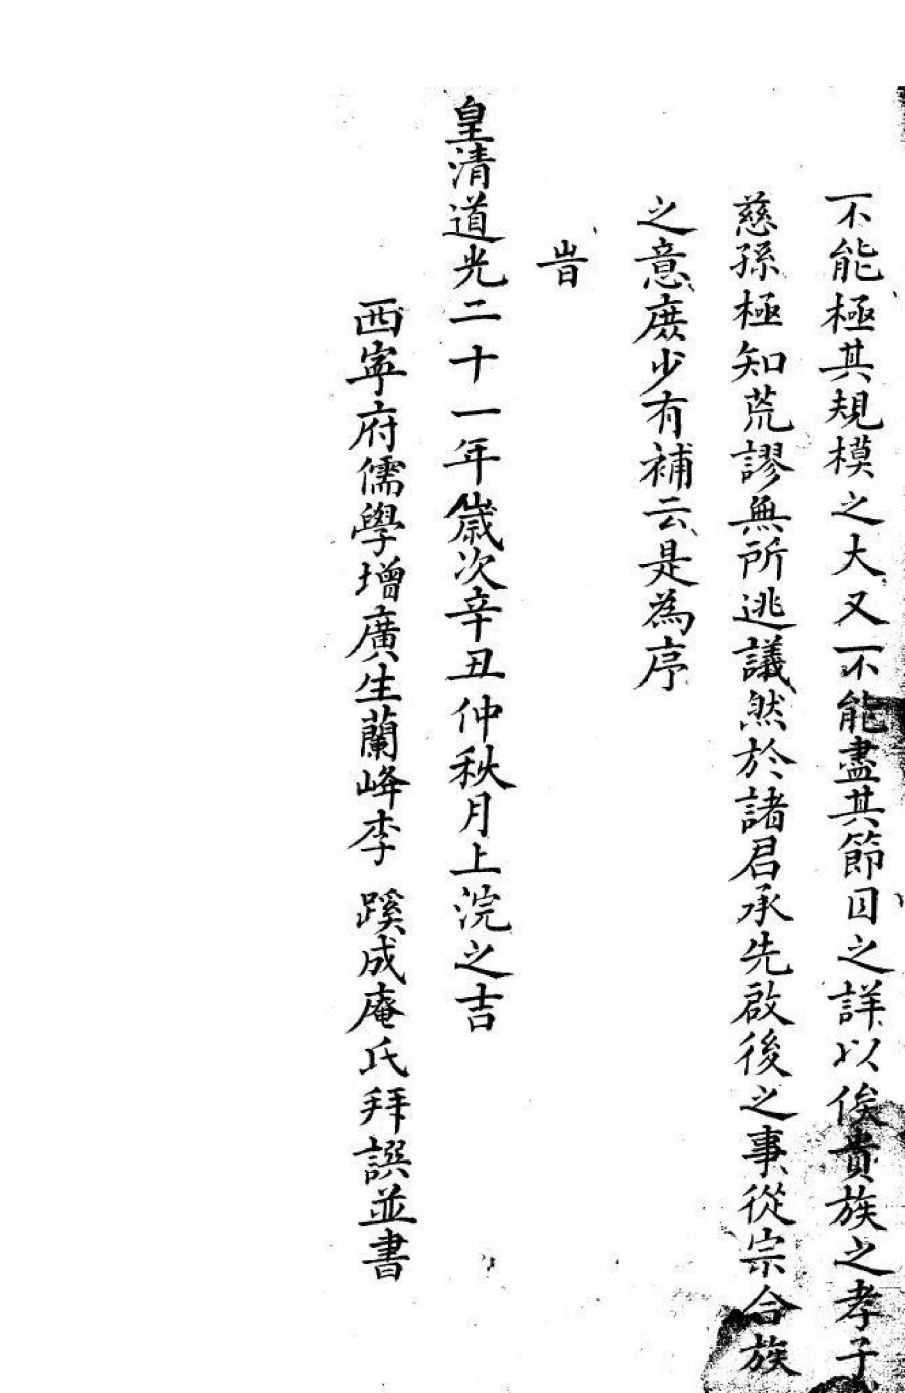 不能極其規模之大又不能盡其節目之詳以俟貴族之孝子
慈孫極知荒謬無所逃議然於諸君承先啟後之事從宗合族
之意庶少有補云是為序
旹
皇清道光二十一年歲次辛丑仲秋月上浣之吉
西寧府儒學增廣生蘭峰李蹊成庵氏拜譔並書